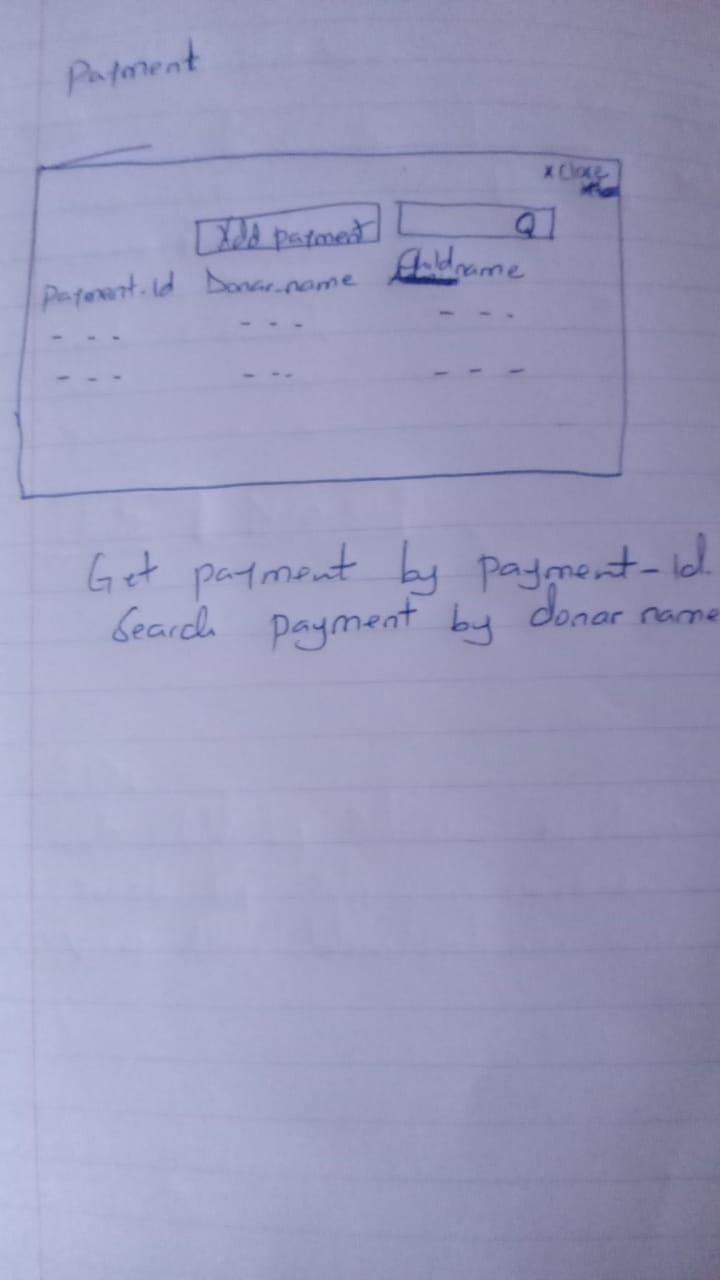 Payment
x Close
Add payment
Payment-id Donar-name Childname
- - - - - - - - -
- - - - - - - - -
Get payment by payment-id.
Search payment by donar name